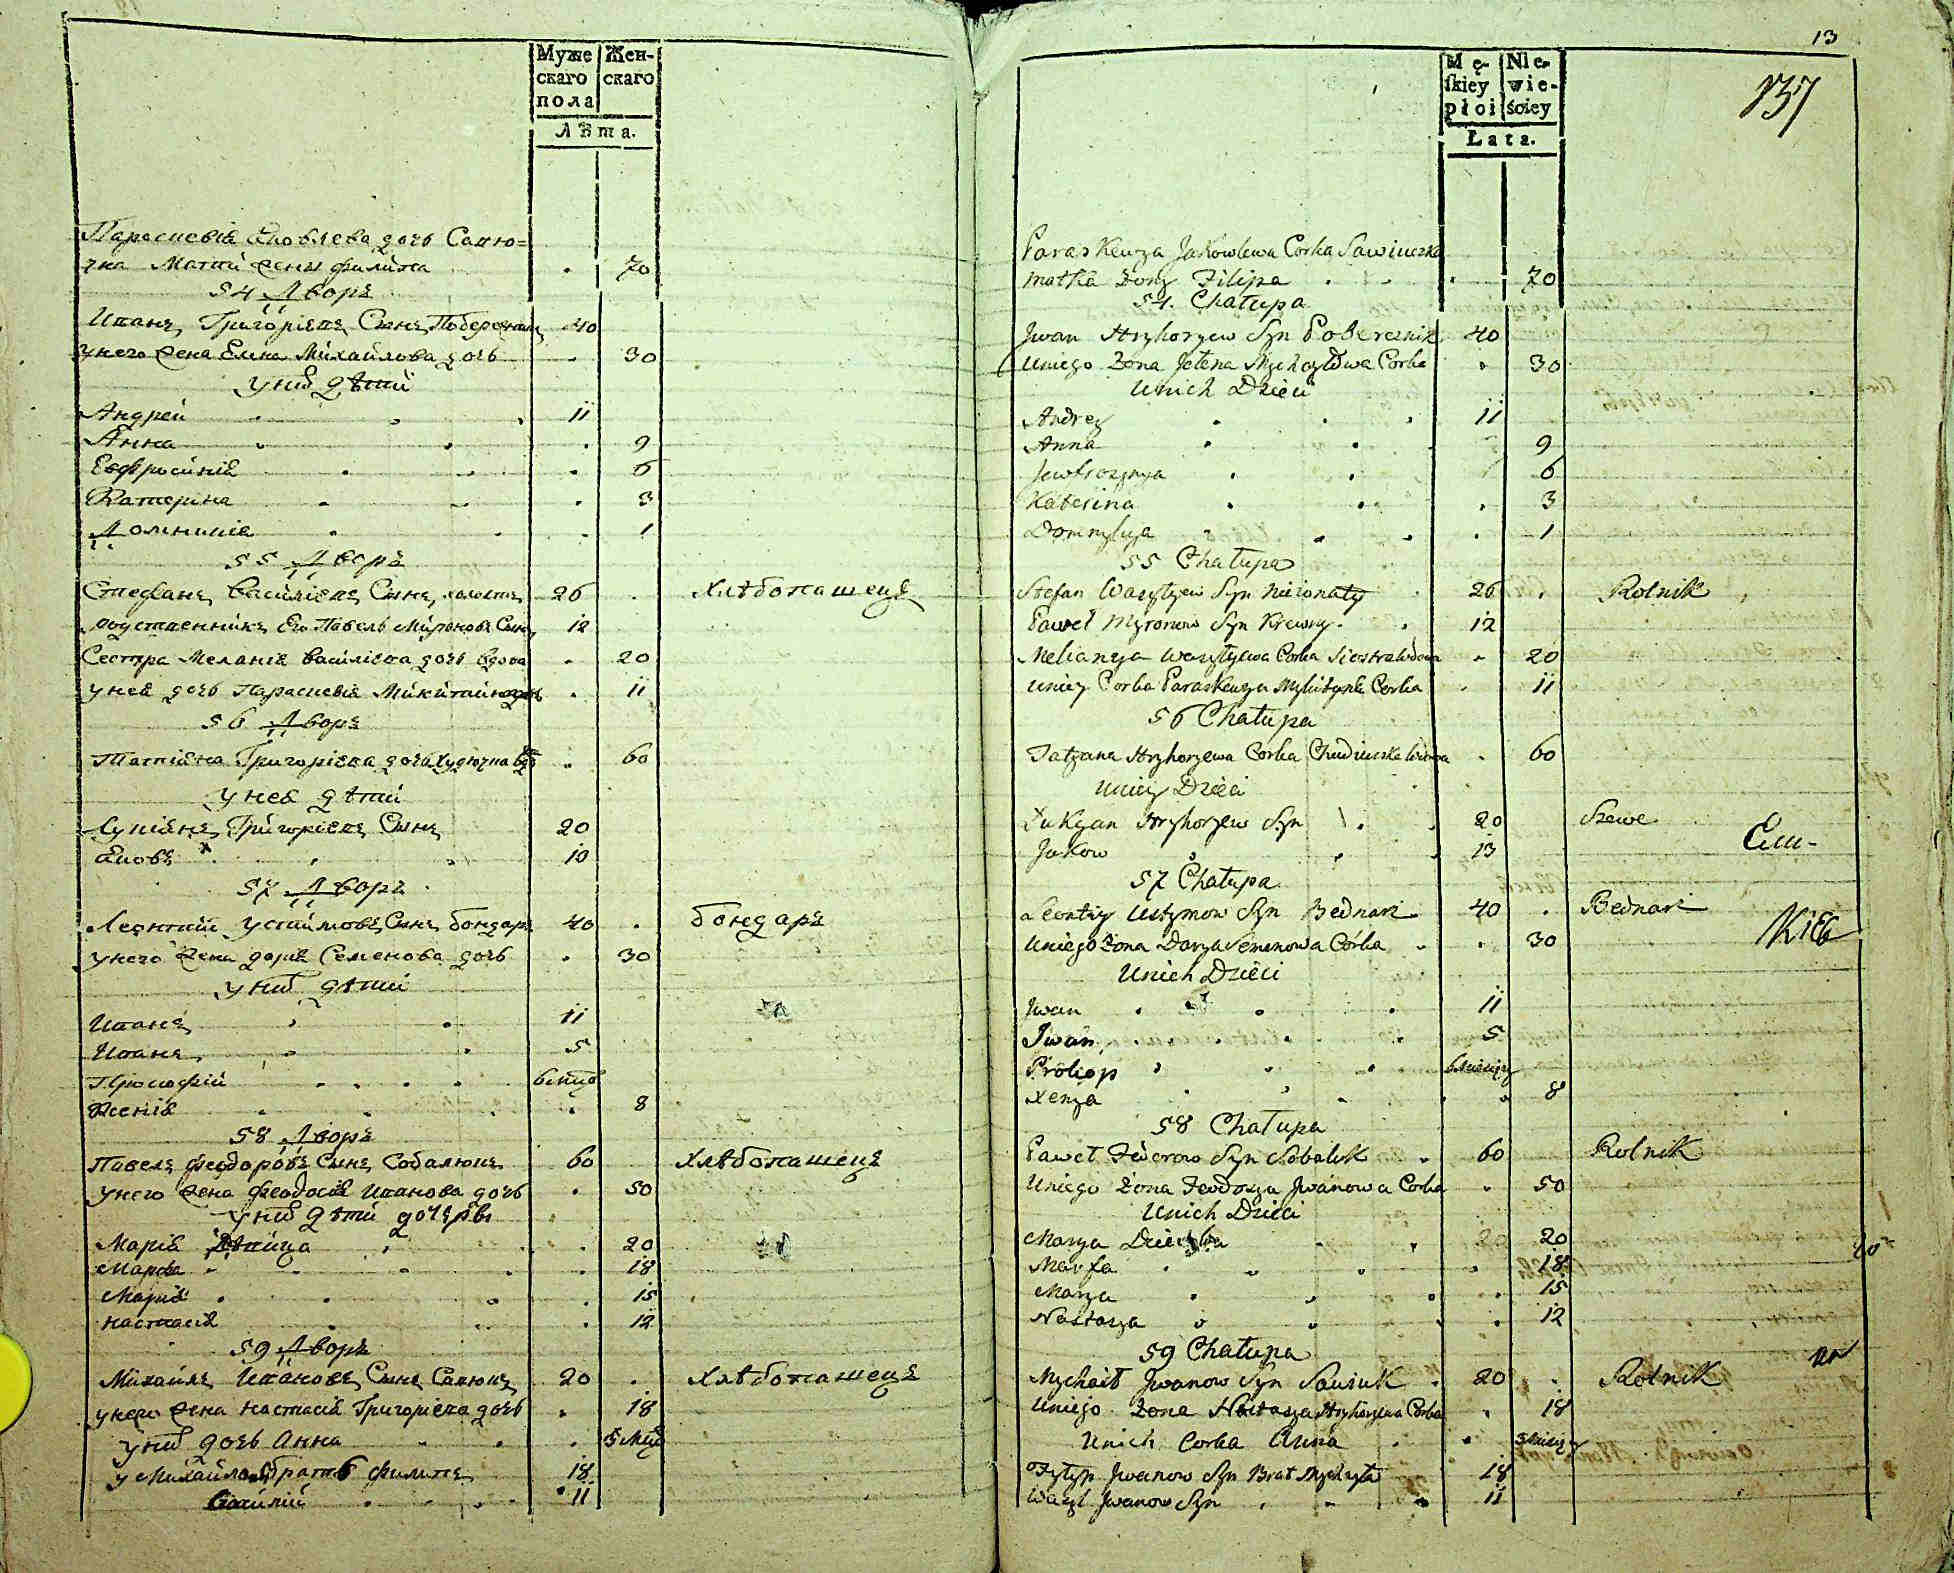 Муже
скаго
пола
Жен-
скаго
Лѣта.
Параскевія Яковлева дочь Савю=
чка Мати жены филипа . 70
54 Дворъ
Иванъ Григоріевъ Сынъ Побережникъ 40
у него жена Елена Михайлова дочь . 30
у нихъ дѣти
Андрей 11
Анна . 9
Евфросинія . 6
Катерина . 3
Домникія . 1
55 Дворъ
Стефанъ Василіевъ Сынъ холостъ 26 . Хлѣбопашецъ
родственникъ Его Павелъ Мироновъ Сынъ 12
Сестра Меланія Василіева дочь вдова . 20
у нея дочь Параскевія Микитина дочь . 11
56 Дворъ
Татіяна Григоріева дочь Худючка . 60
у нея дѣти
Лукіянъ Григоріевъ Сынъ 20
Яковъ 13
57 Дворъ
Леонтий Устимовъ Сынъ бондаръ 40 . бондаръ
у него жена дарія Семенова дочь . 30
у нихъ дѣти
Иванъ 11
Иванъ 5
Прокофій 6 мцъ
Ксенія . 8
58 Дворъ
Павелъ Феодоровъ Сынъ Собалюкъ 60 Хлѣбопашецъ
у него жена Феодосія Иванова дочь . 50
у нихъ дѣти дочери
Марія Дѣвица . 20
Марфа . 18
Марія . 15
Настасія . 12
59 Дворъ
Михайлъ Ивановъ Сынъ Савюкъ 20 . Хлѣбопашецъ
у него жена Настасія Григоріева дочь . 18
у нихъ дочь Анна . 5 мцъ
у Михайла братъ Филипъ 18
Василій 11
13
137
Mę-
skiey
płci
Nie-
wie-
ściey
Lata.
Paraskewya Jakowlewa Corka Sawiuczka
matka Żony Filipa . 70
54. Chałupa
Jwan Hryhoryew Syn Pobereznik 40
Uniego Żona Jełena Mychayłowa Corka . 30
Unich Dzieci
Andrey 11
Anna 9
Jewfrozynya 6
Katerina . 3
Domnykya . 1
55 Chałupa
Stefan Wasylyew Syn nieżonaty 26 . Rolnik
Paweł Myronow Syn Krewny 12
Melanya Wasylyewa Corka Siostra Wdowa . 20
Uniey Corka Paraskewya Mykityna Corka . 11
56 Chałupa
Tatyana Hryhoryewa Corka Chudiuczka Wdowa . 60
Uniey Dzieci
Łukyan Hryhoryew Syn 20 Szewc
Jakow 13
57 Chałupa
Leontiy Ustymow Syn Bednarz 40 . Bednarz
Uniego Żona Darya Semenowa Córka . 30
Unich Dzieci
Jwan 11
Jwan 5
Prokop 6 miesięcy
Xenya . 8
58 Chałupa
Paweł Fedorow Syn Sobaluk 60 Rolnik
Uniego Żona Feodosya Jwanowa Corka . 50
Unich Dzieci
Marya Dziewka 20
Marfa . 18
Marya . 15
Nastasya . 12
59 Chałupa
Mychaił Jwanow Syn Sawiuk 20 . Rolnik
Uniego Żona Nastasya Hryhoryewa Corka . 18
Unich Corka Anna . 5 miesięcy
Fylyp Jwanow Syn Brat Mychayła 18
Wasyl Jwanow Syn 11